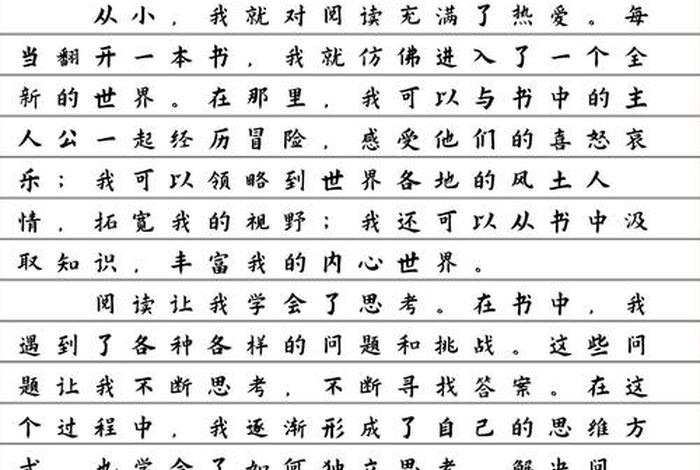 从小，我就对阅读充满了热爱。每
当翻开一本书，我就仿佛进入了一个全
新的世界。在那里，我可以与书中的主
人公一起经历冒险，感受他们的喜怒哀
乐；我可以领略到世界各地的风土人
情，拓宽我的视野；我还可以从书中汲
取知识，丰富我的内心世界。
阅读让我学会了思考。在书中，我
遇到了各种各样的问题和挑战。这些问
题让我不断思考，不断寻找答案。在这
个过程中，我逐渐形成了自己的思维方
式，也学会了如何独立思考、解决问